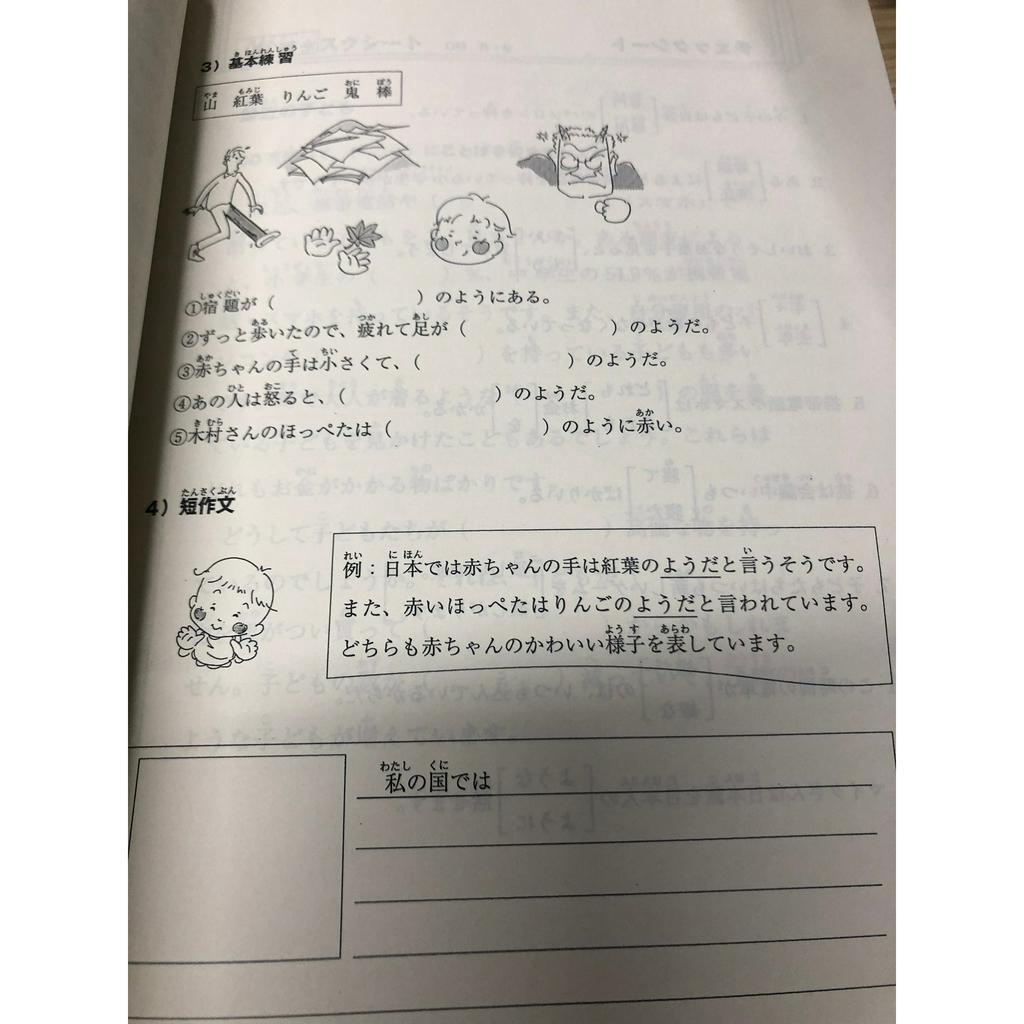 3）基本練習
山 紅葉 りんご 鬼 棒
①宿題が（　　　　　　　）のようにある。
②ずっと歩いたので、疲れて足が（　　　　　　　）のようだ。
③赤ちゃんの手は小さくて、（　　　　　　　）のようだ。
④あの人は怒ると、（　　　　　　　）のようだ。
⑤木村さんのほっぺたは（　　　　　　　）のように赤い。
4）短作文
例：日本では赤ちゃんの手は紅葉のようだと言うそうです。
また、赤いほっぺたはりんごのようだと言われています。
どちらも赤ちゃんのかわいい様子を表しています。
私の国では